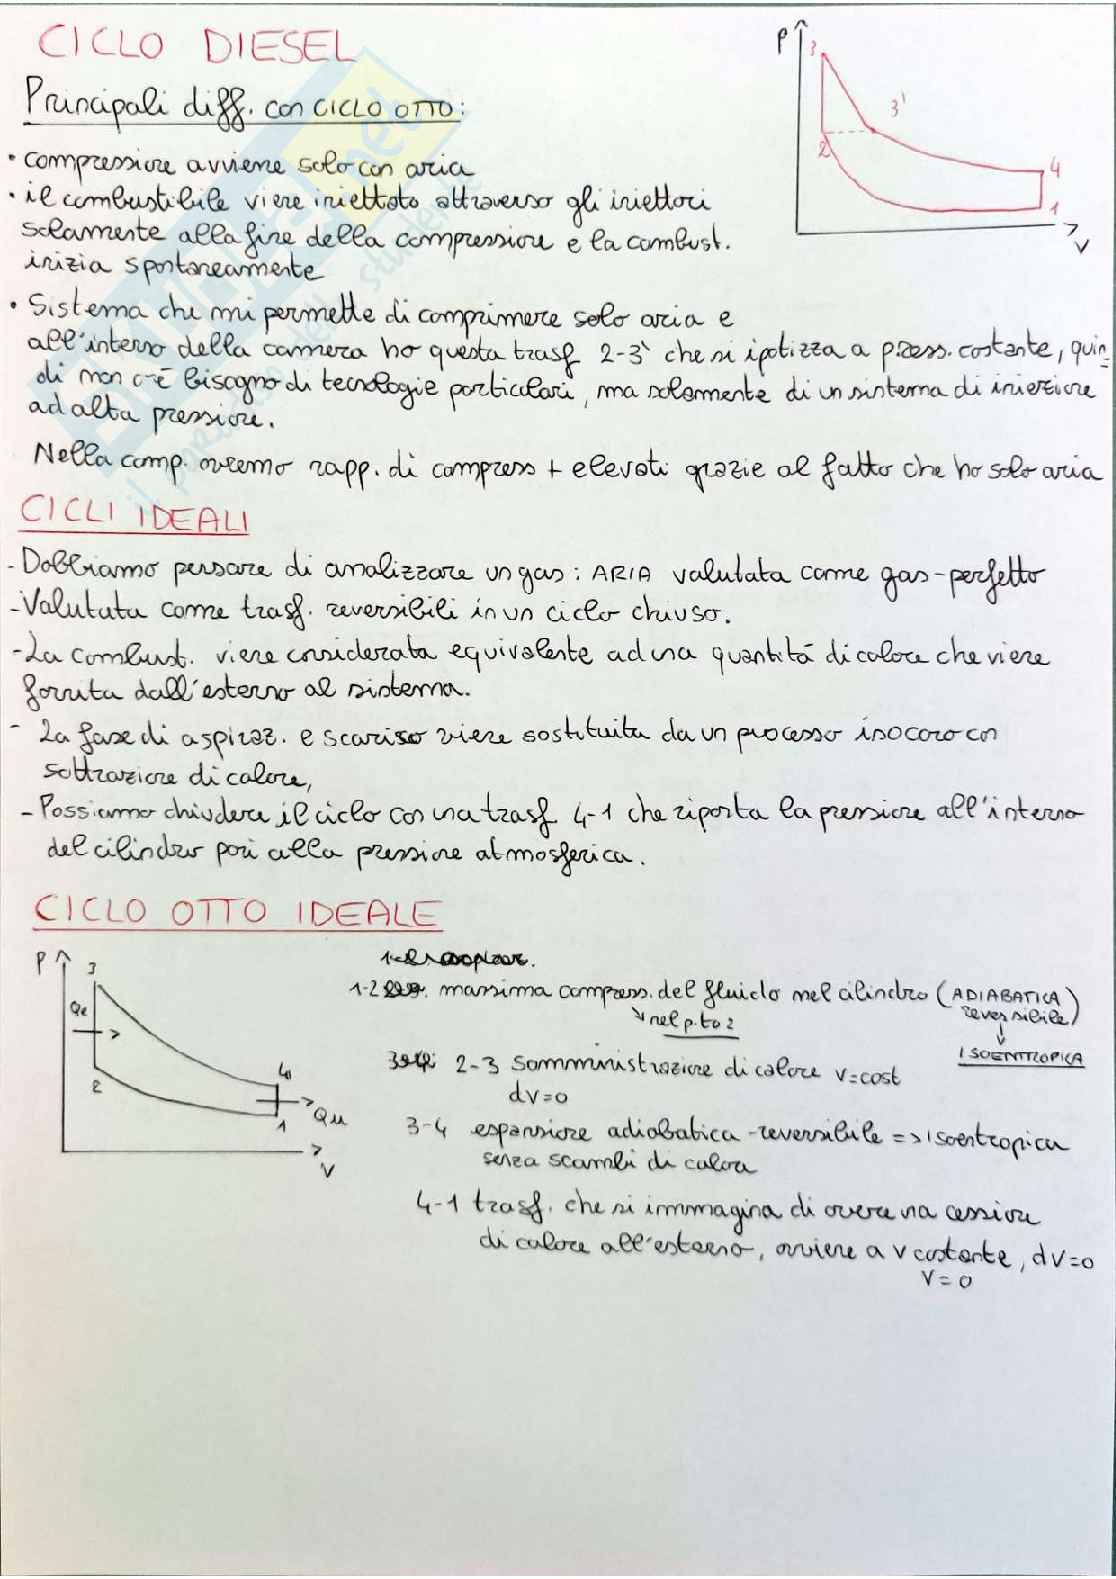 CICLO DIESEL
Principali diff. con CICLO OTTO:
• compressione avviene solo con aria
• il combustibile viene iniettato attraverso gli iniettori
solamente alla fine della compressione e la combust.
inizia spontaneamente
• Sistema che mi permette di comprimere solo aria e
all'interno della camera ho questa trasf 2-3' che si ipotizza a press. costante, quin=
di non c'è bisogno di tecnologie particolari, ma solamente di un sistema di iniezione
ad alta pressione.
Nella comp. avremo rapp. di compress + elevati grazie al fatto che ho solo aria
P
3
3'
2
4
1
V
CICLI IDEALI
- Dobbiamo pensare di analizzare un gas: ARIA valutata come gas-perfetto
- Valutata come trasf. reversibili in un ciclo chiuso.
- La combust. viene considerata equivalente ad una quantitá di calore che viene
fornita dall'esterno al sistema.
- La fase di aspiraz. e scarico viene sostituita da un processo isocoro con
sottrazione di calore,
- Possiamo chiudere il ciclo con una trasf 4-1 che riporta la pressione all'interno
del cilindro pari alla pressione atmosferica.
CICLO OTTO IDEALE
P
3
Qe
2
4
1
Qu
V
1-2 massima compress. del fluido nel cilindro (ADIABATICA
reversibile)
nel p.to 2
ISOENTROPICA
2-3 somministrazione di calore v=cost
dv=0
3-4 espansione adiabatica-reversibile => isoentropica
senza scambi di calore
4-1 trasf. che si immagina di avere una cessione
di calore all'esterno, avviene a v costante, dv=0
v=0